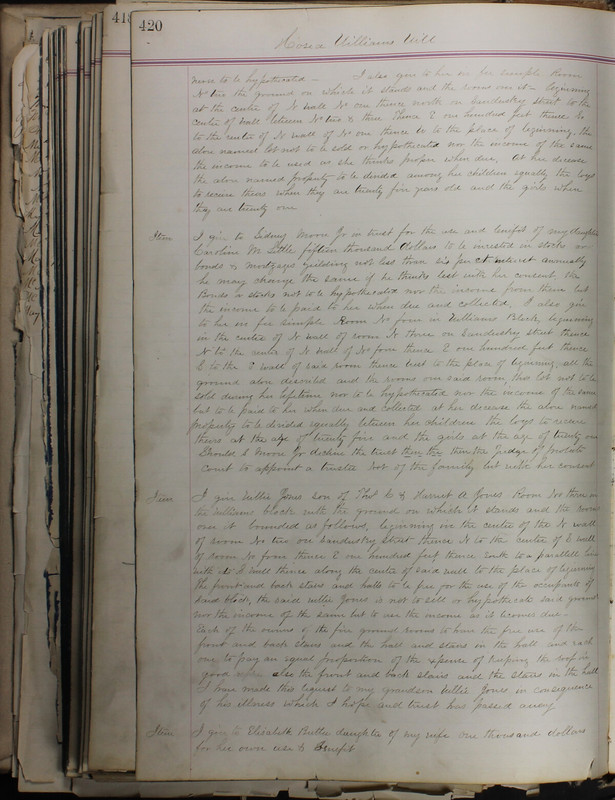 418
420
Hosea Williams Will
nor to be hypothecated — I also give to her one fee simple Room
No two the ground on which it stands and the rooms over it - beginning
at the center of N wall No one thence north on Sandusky street to the
center of wall between No two & three Thence E one hundred feet thence So
to the center of N wall of No one thence W to the place of beginning, the
above named lot not to be sold or hypothecated nor the income of the same
the income to be used as she thinks proper when due, At her decease
the above named property to be divided among her children equally the boys
to receive theirs when they are twenty five years old and the girls when
they are twenty one
Item I give to Sidney Moore Jr in trust for the use and benefit of my daughter
Caroline M Little fifteen thousand dollars to be invested in stocks or
bonds & mortgages yielding not less than six per ct interest annually
he may change the same if he thinks best with her consent the
Bonds or stocks not to be hypothecated nor the income from them but
the income to be paid to her when due and collected, I also give
to her one fee simple Room No four in Williams Block, beginning
in the center of N wall of room N three on Sandusky street thence
N to the center of N wall of No four thence E one hundred feet thence
S to the S wall of said room thence west to the place of beginning, all the
ground above described and the rooms over said room, this lot not to be
sold during her lifetime nor to be hypothecated nor the income of the same
but to be paid to her when due and collected at her decease the above named
property to be divided equally between her children the boys to receive
theirs at the age of twenty five and the girls at the age of twenty one
Should S Moore Jr decline the trust then the Judge of probate
Court to appoint a trustee not of the family but with her consent
Item I give Willie Jones son of Thos C & Harriet A Jones Room No three in
the Williams block with the ground on which it stands and the rooms
over it bounded as follows, beginning in the center of the N wall
of room No two on Sandusky street thence N to the center of S wall
of room No four thence E one hundred feet thence south to a parallell line
with S wall thence along the center of said wall to the place of beginning
The front and back stairs and halls to be free for the use of the occupants of
said block, the said Willie Jones is not to sell or hypothecate said ground
nor the income of the same but to use the income as it becomes due -
Each of the owners of the five ground rooms to have the free use of the
front and back stairs and the hall and stairs in the hall and each
one to pay an equal proportion of the expense of keeping the roof in
good repair also the front and back stairs and the stairs in the hall
I have made this bequest to my grandson Willie Jones in consequence
of his illness which I hope and trust has passed away
Item I give to Elizabeth Butler daughter of my wife one thousand dollars
for her own use & benefit